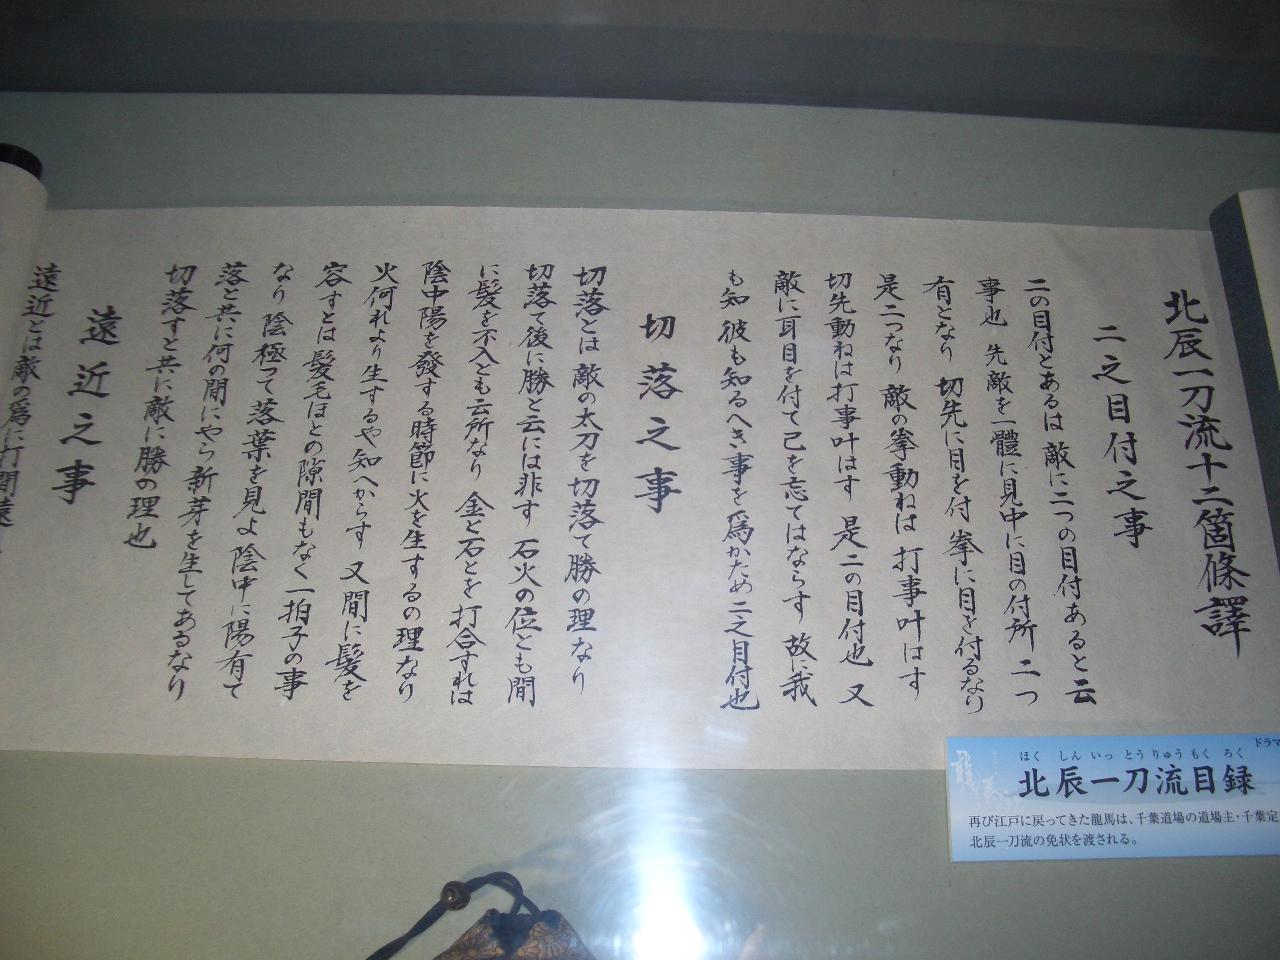 北辰一刀流十二箇條譯
二之目付之事
二の目付とあるは 敵に二つの目付あると云
事也 先敵を一體に見中に目の付所 二つ
有となり 切先に目を付 拳に目を付るなり
是二つなり 敵の拳動ねは 打事叶はす
切先動ねは打事叶はす 是二の目付也 又
敵に耳目を付て己を忘てはならす 故に我
も知 彼も知るへき事を爲かため二之目付也
切落之事
切落とは 敵の太刀を切落て勝の理なり
切落て後に勝と云には非す 石火の位とも間
に髪を不入とも云所なり 金と石とを打合すれは
陰中陽を發する時節に火を生するの理なり
火何れより生するや知へからす 又間に髪を
容すとは髪毛ほとの隙間もなく一拍子の事
なり 陰極って落葉を見よ 陰中に陽有て
落と共に何の間にやら新芽を生してあるなり
切落すと共に敵に勝の理也
遠近之事
遠近とは敵の爲に打間遠
ドラマ
ほくしんいっとうりゅうもくろく
北辰一刀流目録
再び江戸に戻ってきた龍馬は、千葉道場の道場主・千葉定
北辰一刀流の免状を渡される。